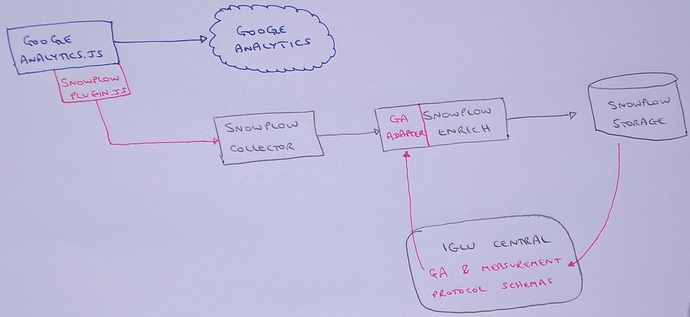 GOOGLE
ANALYTICS.JS
GOOGLE
ANALYTICS
SNOWPLOW
PLUGIN.JS
SNOWPLOW
COLLECTOR
GA
ADAPTER
SNOWPLOW
ENRICH
SNOWPLOW
STORAGE
IGLU CENTRAL
GA & MEASUREMENT
PROTOCOL SCHEMAS